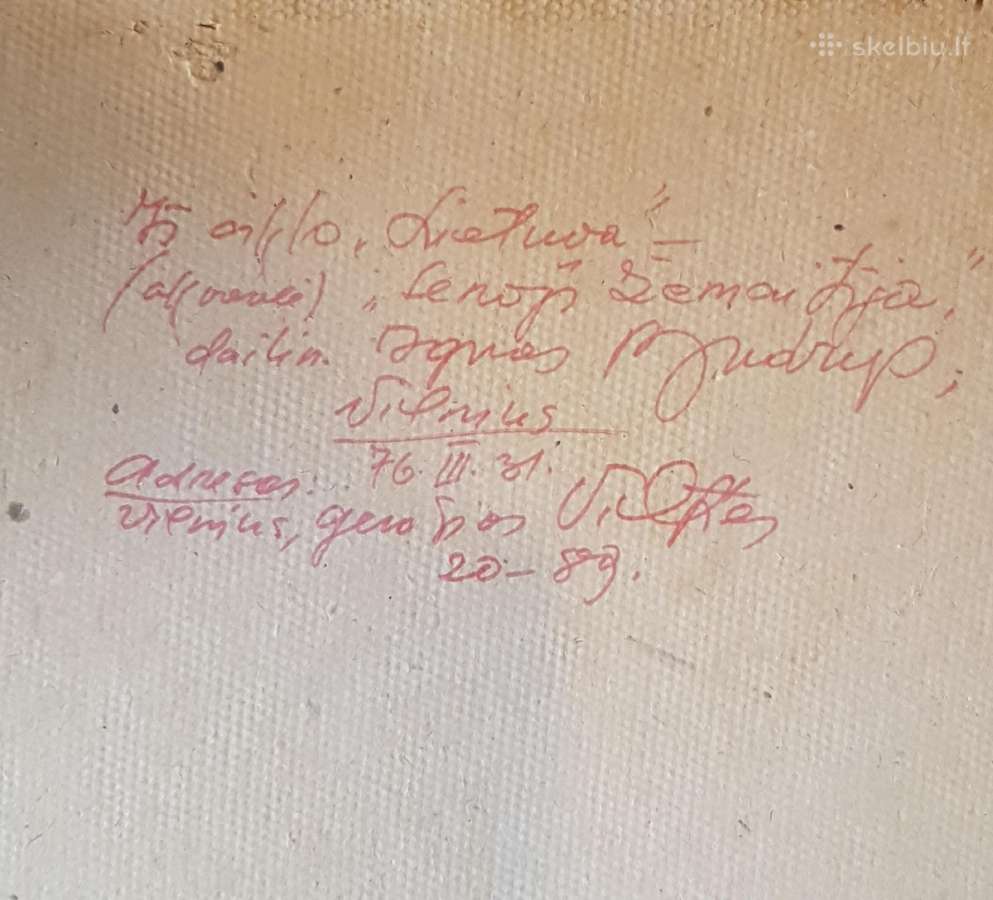 skelbiu.lt
Iš ciklo „Lietuva" –
„Senoji Žemaitija",
dailin. Ignas Budrys,
Vilnius
76.III.31.
Adresas:
Vilnius, Vilties
20–89.